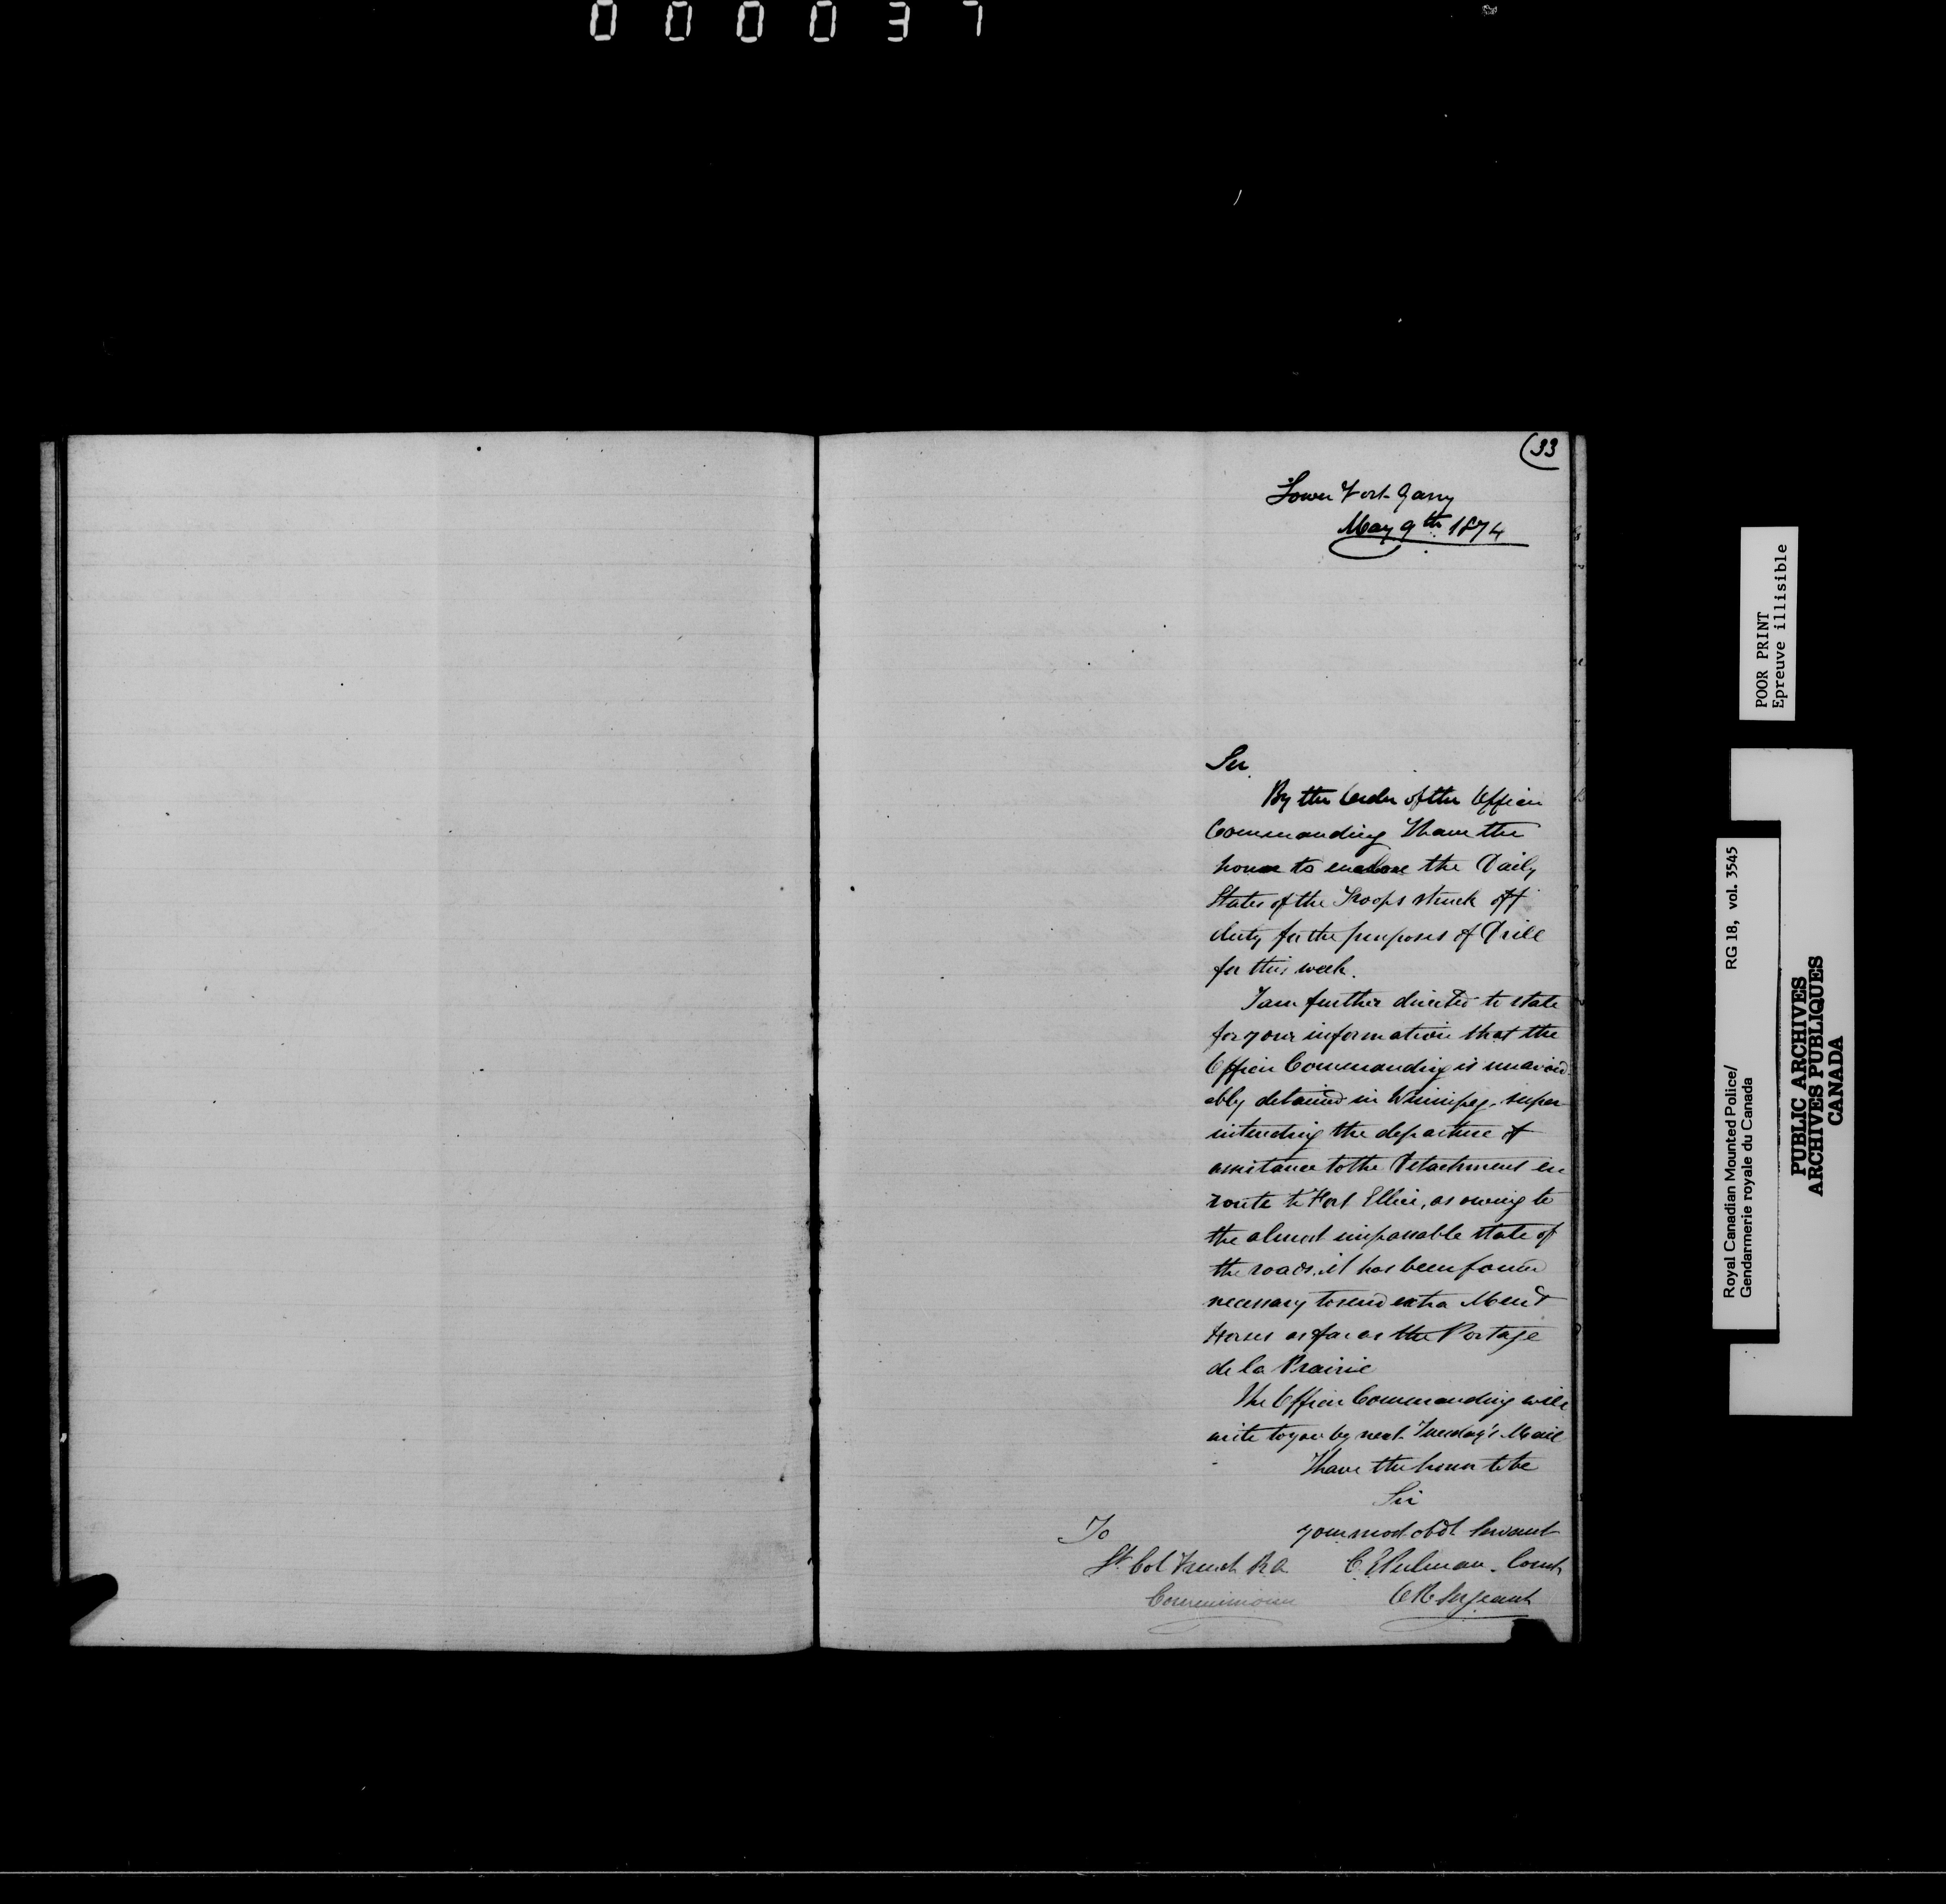 000037
(33
Lower Fort Garry
May 9th 1874
Sir
By the Order of the Officer
Commanding I have the
honor to enclose the Daily
States of the Troops struck off
duty for the purposes of Drill
for this week.
I am further directed to state
for your information that the
Officer Commanding is unavoid-
ably detained in Winnipeg, super-
intending the departure of
assistance to the Detachment en
route to Fort Ellice, as owing to
the almost impassable state of
the roads, it has been found
necessary to send extra Men &
Horses as far as the Portage
de la Prairie
The Officer Commanding will
write to you by next Tuesday's Mail
I have the honor to be
Sir
your most obdt Servant
To
Lt Col French R.A.
Commissioner
C. E. Const
O.R. Sergeant
POOR PRINT
Epreuve illisible
Royal Canadian Mounted Police/ RG 18, vol. 3545
Gendarmerie royale du Canada
PUBLIC ARCHIVES
ARCHIVES PUBLIQUES
CANADA